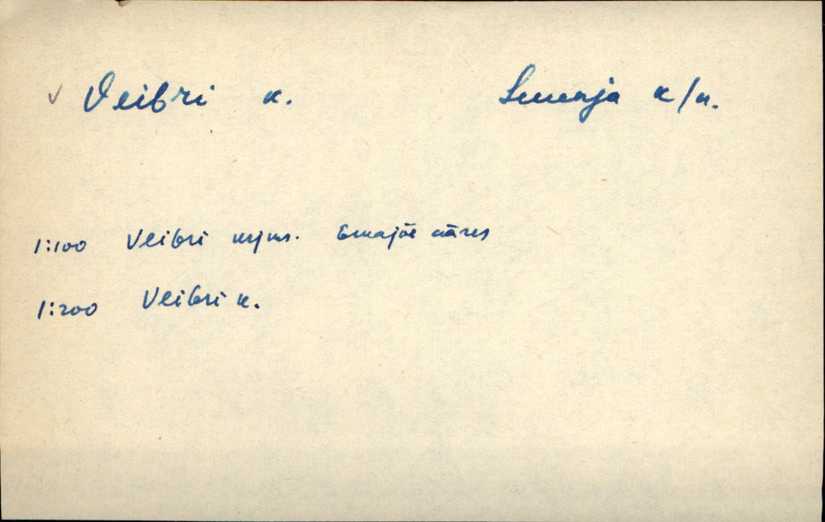 ✓ Veibri k. Luunja k/n.
1:100 Veibri Emajõe ääres
1:200 Veibri k.